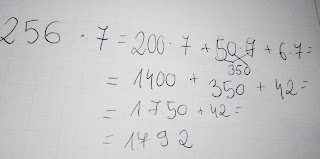 256 · 7 = 200 · 7 + 50 · 7 + 6 · 7 =
350
= 1400 + 350 + 42 =
= 1750 + 42 =
= 1792